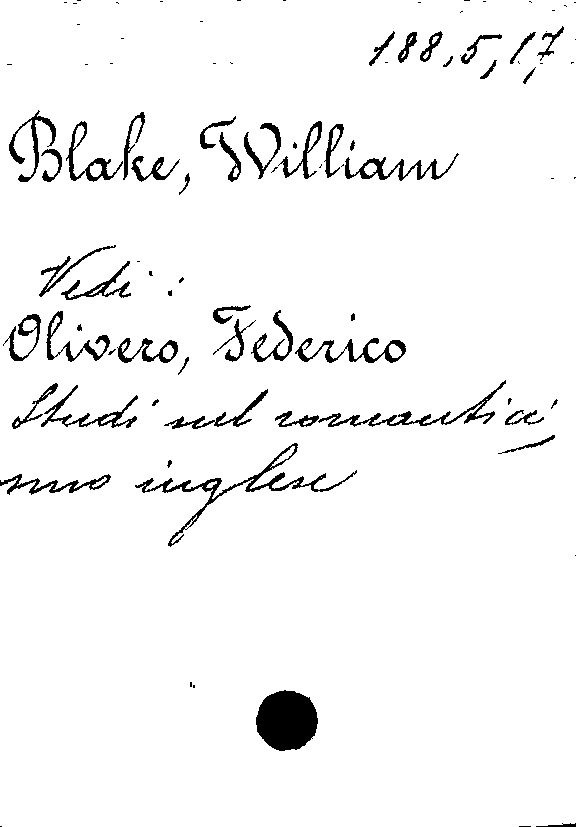 188,5,17
Blake, William
Vedi:
Olivero, Federico
Studi sul romantici
smo inglese